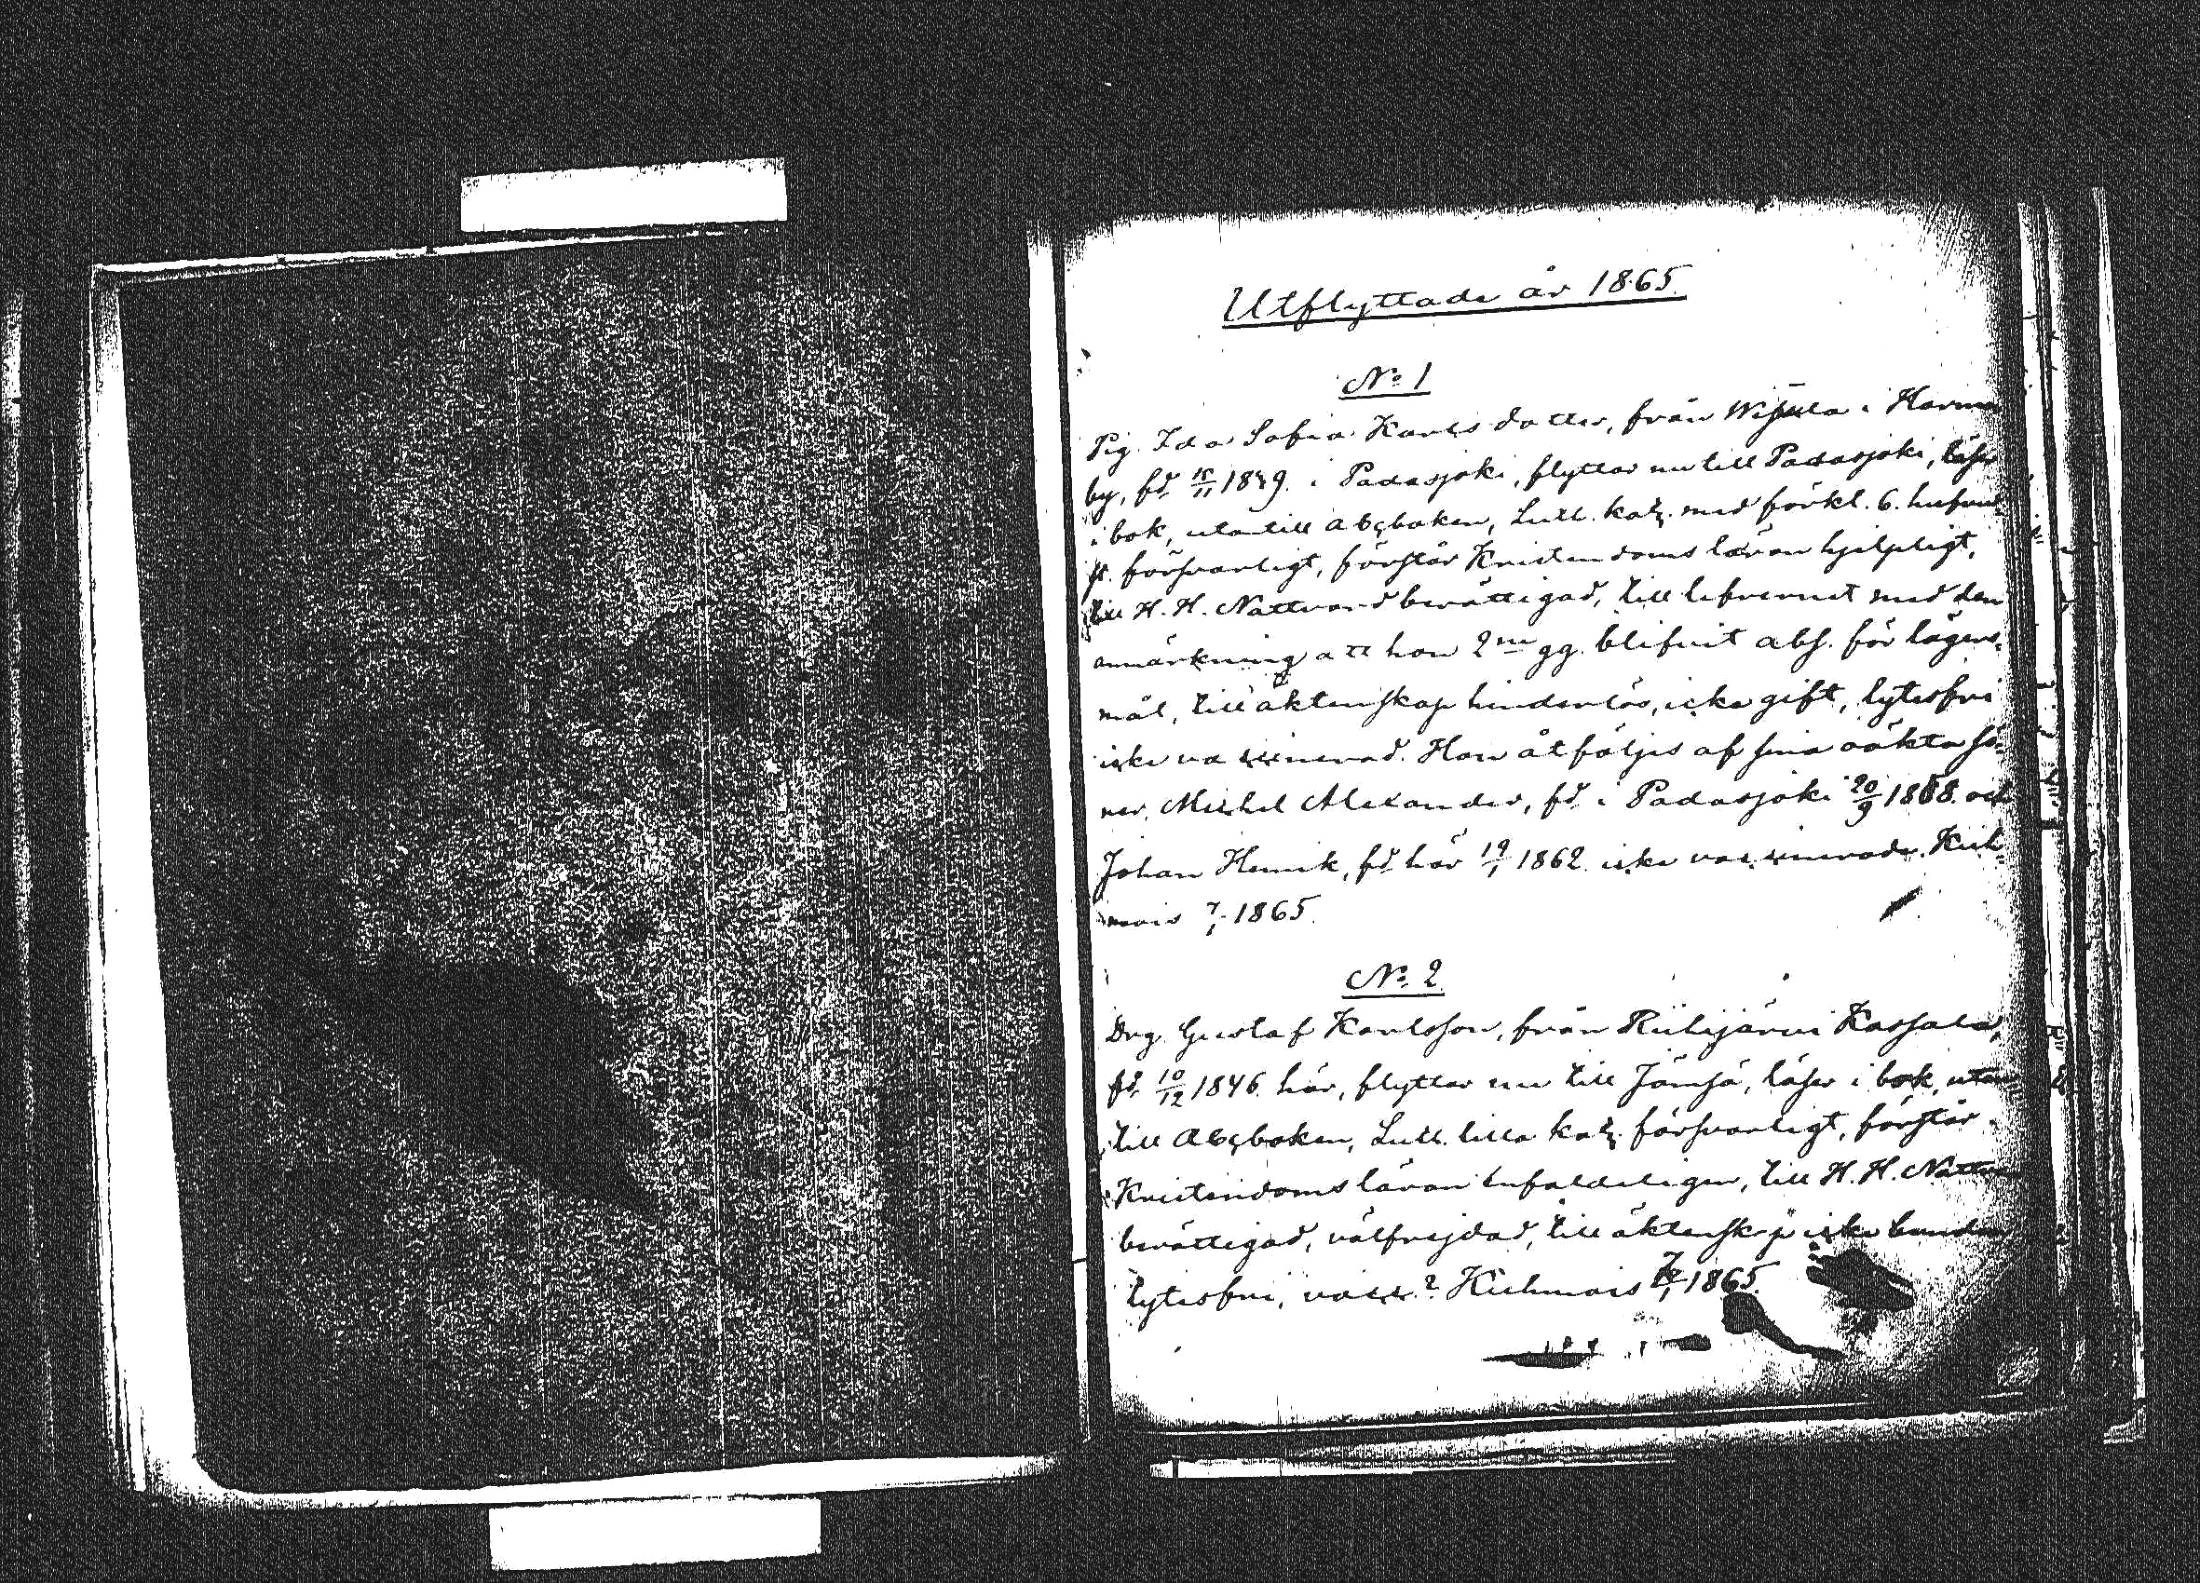 Utflyttade år 1865.
No 1
Pig. Ida Sofia Karlsdotter, från i Harmo
by, fd. 1849. i Padasjoki, flyttar nu till Padasjoki, läser
i bok, utantill abcboken, Luth. katz. med förkl. 6. hufvud-
st. försvarligt, förstår Kristendomsläran hjelpligt,
till H. H. Nattvard berättigad, till lefvernet med den
anmärkning att hon 2ne gg. blifvit abs. för lägers-
mål, till äktenskap hinderlös, icke gift, lytesfri
icke vaccinerad. Hon åtföljes af sina oäkta sö-
ner, Michel Alexander, fd. i Padasjoki 20/9 1858. och
Johan Henrik, fd. här 19/1 1862. icke vaccinerade. Kuh-
mois 7/1 1865.
No. 2
Drg. Gustaf Karlsson, från Riihijärvi Kassala,
fd. 10/12 1846. här, flyttar nu till Jämsä, läser i bok, utan-
till Abcboken, Luth. lilla katz. försvarligt, förstår
Kristendomsläran enfaldeligen, till H. H. Nattv.
berättigad, välfrejdad, till äktenskap icke bunden
lytesfri, vacc.? Kuhmois 1865.